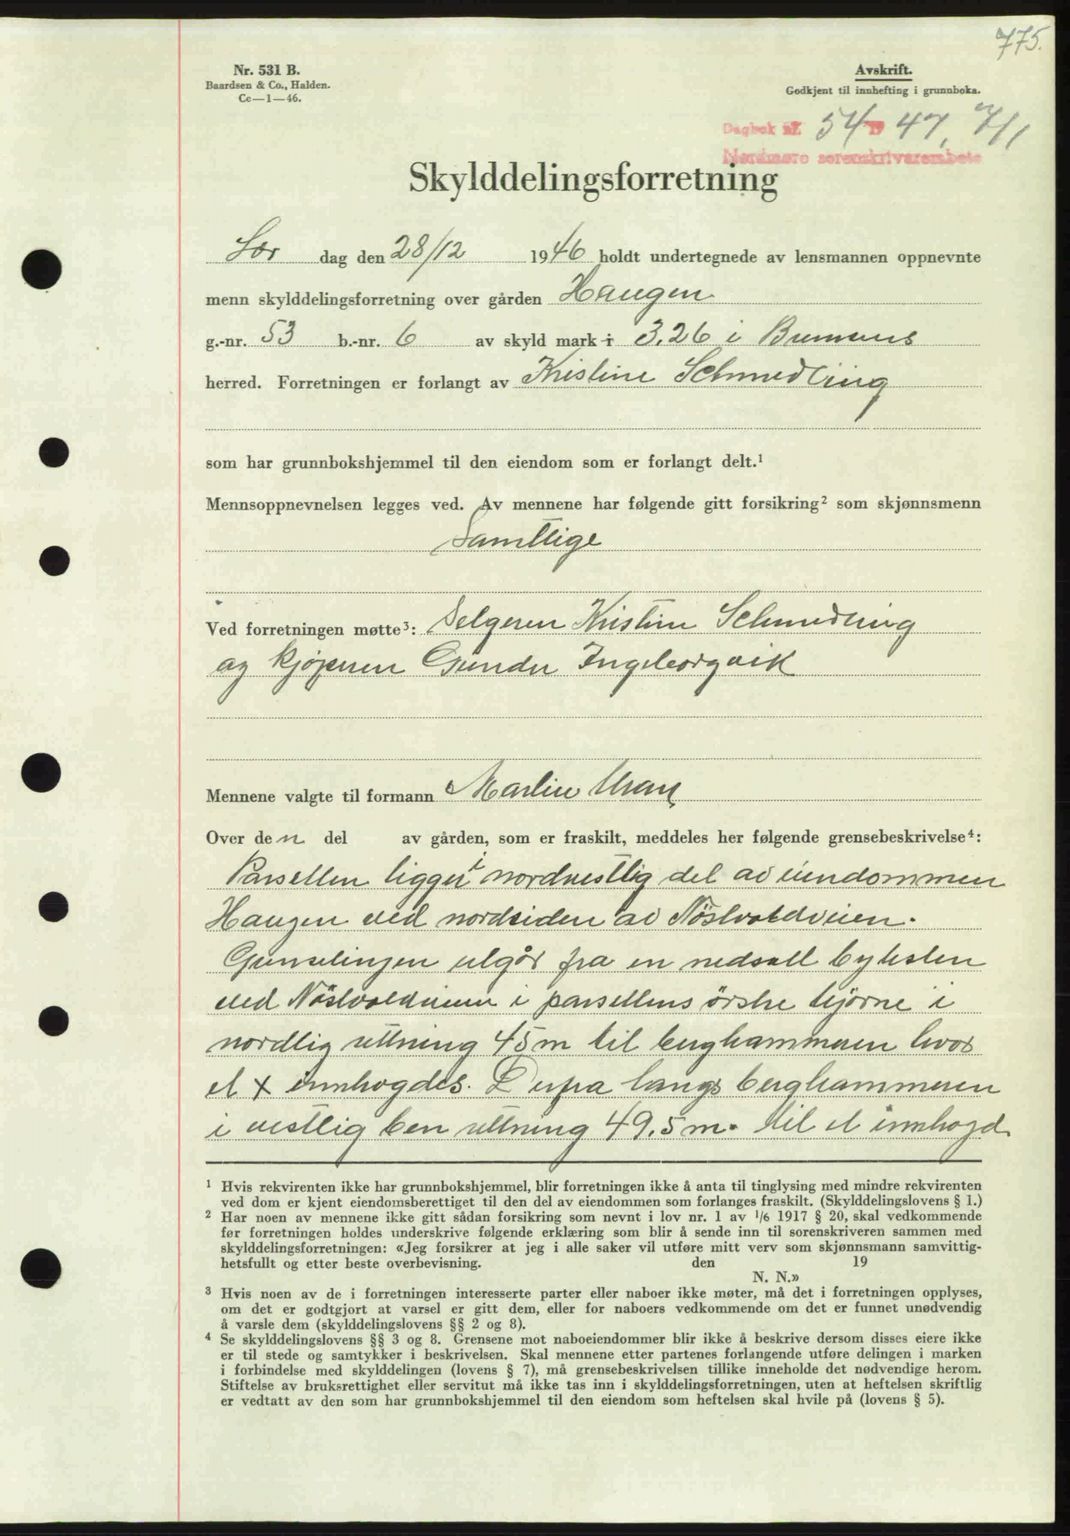 775.
Nr. 531 B.
Baardsen & Co., Halden.
Ce—1—46.
Avskrift.
Godkjent til innhefting i grunnboka.
Dagbok nr. 54 19 47, 7/1
Nordmøre sorenskriverembete
Skylddelingsforretning
Lør dag den 28/12 1946 holdt undertegnede av lensmannen oppnevnte
menn skylddelingsforretning over gården Haugen
g.-nr. 53 b.-nr. 6 av skyld mark 3,26 i Bremsnes
herred. Forretningen er forlangt av Kristine Schmedling
som har grunnbokshjemmel til den eiendom som er forlangt delt.¹
Mennsoppnevnelsen legges ved. Av mennene har følgende gitt forsikring² som skjønnsmenn
Samtlige
Ved forretningen møtte³: Selgeren Kristine Schmedling
og kjøperen Gunder Ingeborgvik
Mennene valgte til formann Martin
Over den del av gården, som er fraskilt, meddeles her følgende grensebeskrivelse⁴:
Parsellen ligger i nordvestlig del av eiendommen
Haugen ved nordsiden av Nöstvoldveien.
Grenselinjen utgår fra en nedsatt bytesten
ved Nöstvoldveien i parsellens östre hjörne i
nordlig retning 45 m til berghammeren hvor
et x innhogdes. Derfra langs berghammeren
i vestlig ben retning 49,5 m. til et innhogd
¹ Hvis rekvirenten ikke har grunnbokshjemmel, blir forretningen ikke å anta til tinglysing med mindre rekvirenten
ved dom er kjent eiendomsberettiget til den del av eiendommen som forlanges fraskilt. (Skylddelingslovens § 1.)
² Har noen av mennene ikke gitt sådan forsikring som nevnt i lov nr. 1 av 1/6 1917 § 20, skal vedkommende
før forretningen holdes underskrive følgende erklæring som blir å sende inn til sorenskriveren sammen med
skylddelingsforretningen: «Jeg forsikrer at jeg i alle saker vil utføre mitt verv som skjønnsmann samvittig-
hetsfullt og etter beste overbevisning. den 19
N. N.»
³ Hvis noen av de i forretningen interesserte parter eller naboer ikke møter, må det i forretningen opplyses,
om det er godtgjort at varsel er gitt dem, eller for naboers vedkommende om det er funnet unødvendig
å varsle dem (skylddelingslovens §§ 2 og 8).
⁴ Se skylddelingslovens §§ 3 og 8. Grensene mot naboeiendommer blir ikke å beskrive dersom disses eiere ikke
er til stede og samtykker i beskrivelsen. Skal mennene etter partenes forlangende utføre delingen i marken
i forbindelse med skylddelingen (lovens § 7), må grensebeskrivelsen tillike inneholde det nødvendige herom.
Stiftelse av bruksrettighet eller servitut må ikke tas inn i skylddelingsforretningen, uten at heftelsen skriftlig
er vedtatt av den som har grunnbokshjemmel til den eiendom som heftelsen skal hvile på (lovens § 5).